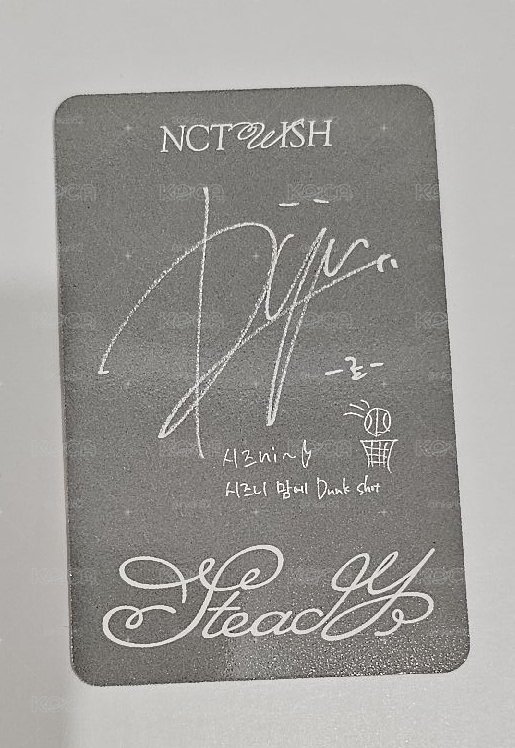 NCT WISH
-료-
시즈ni~
시즈니 맘에 Dunk shot
Steady